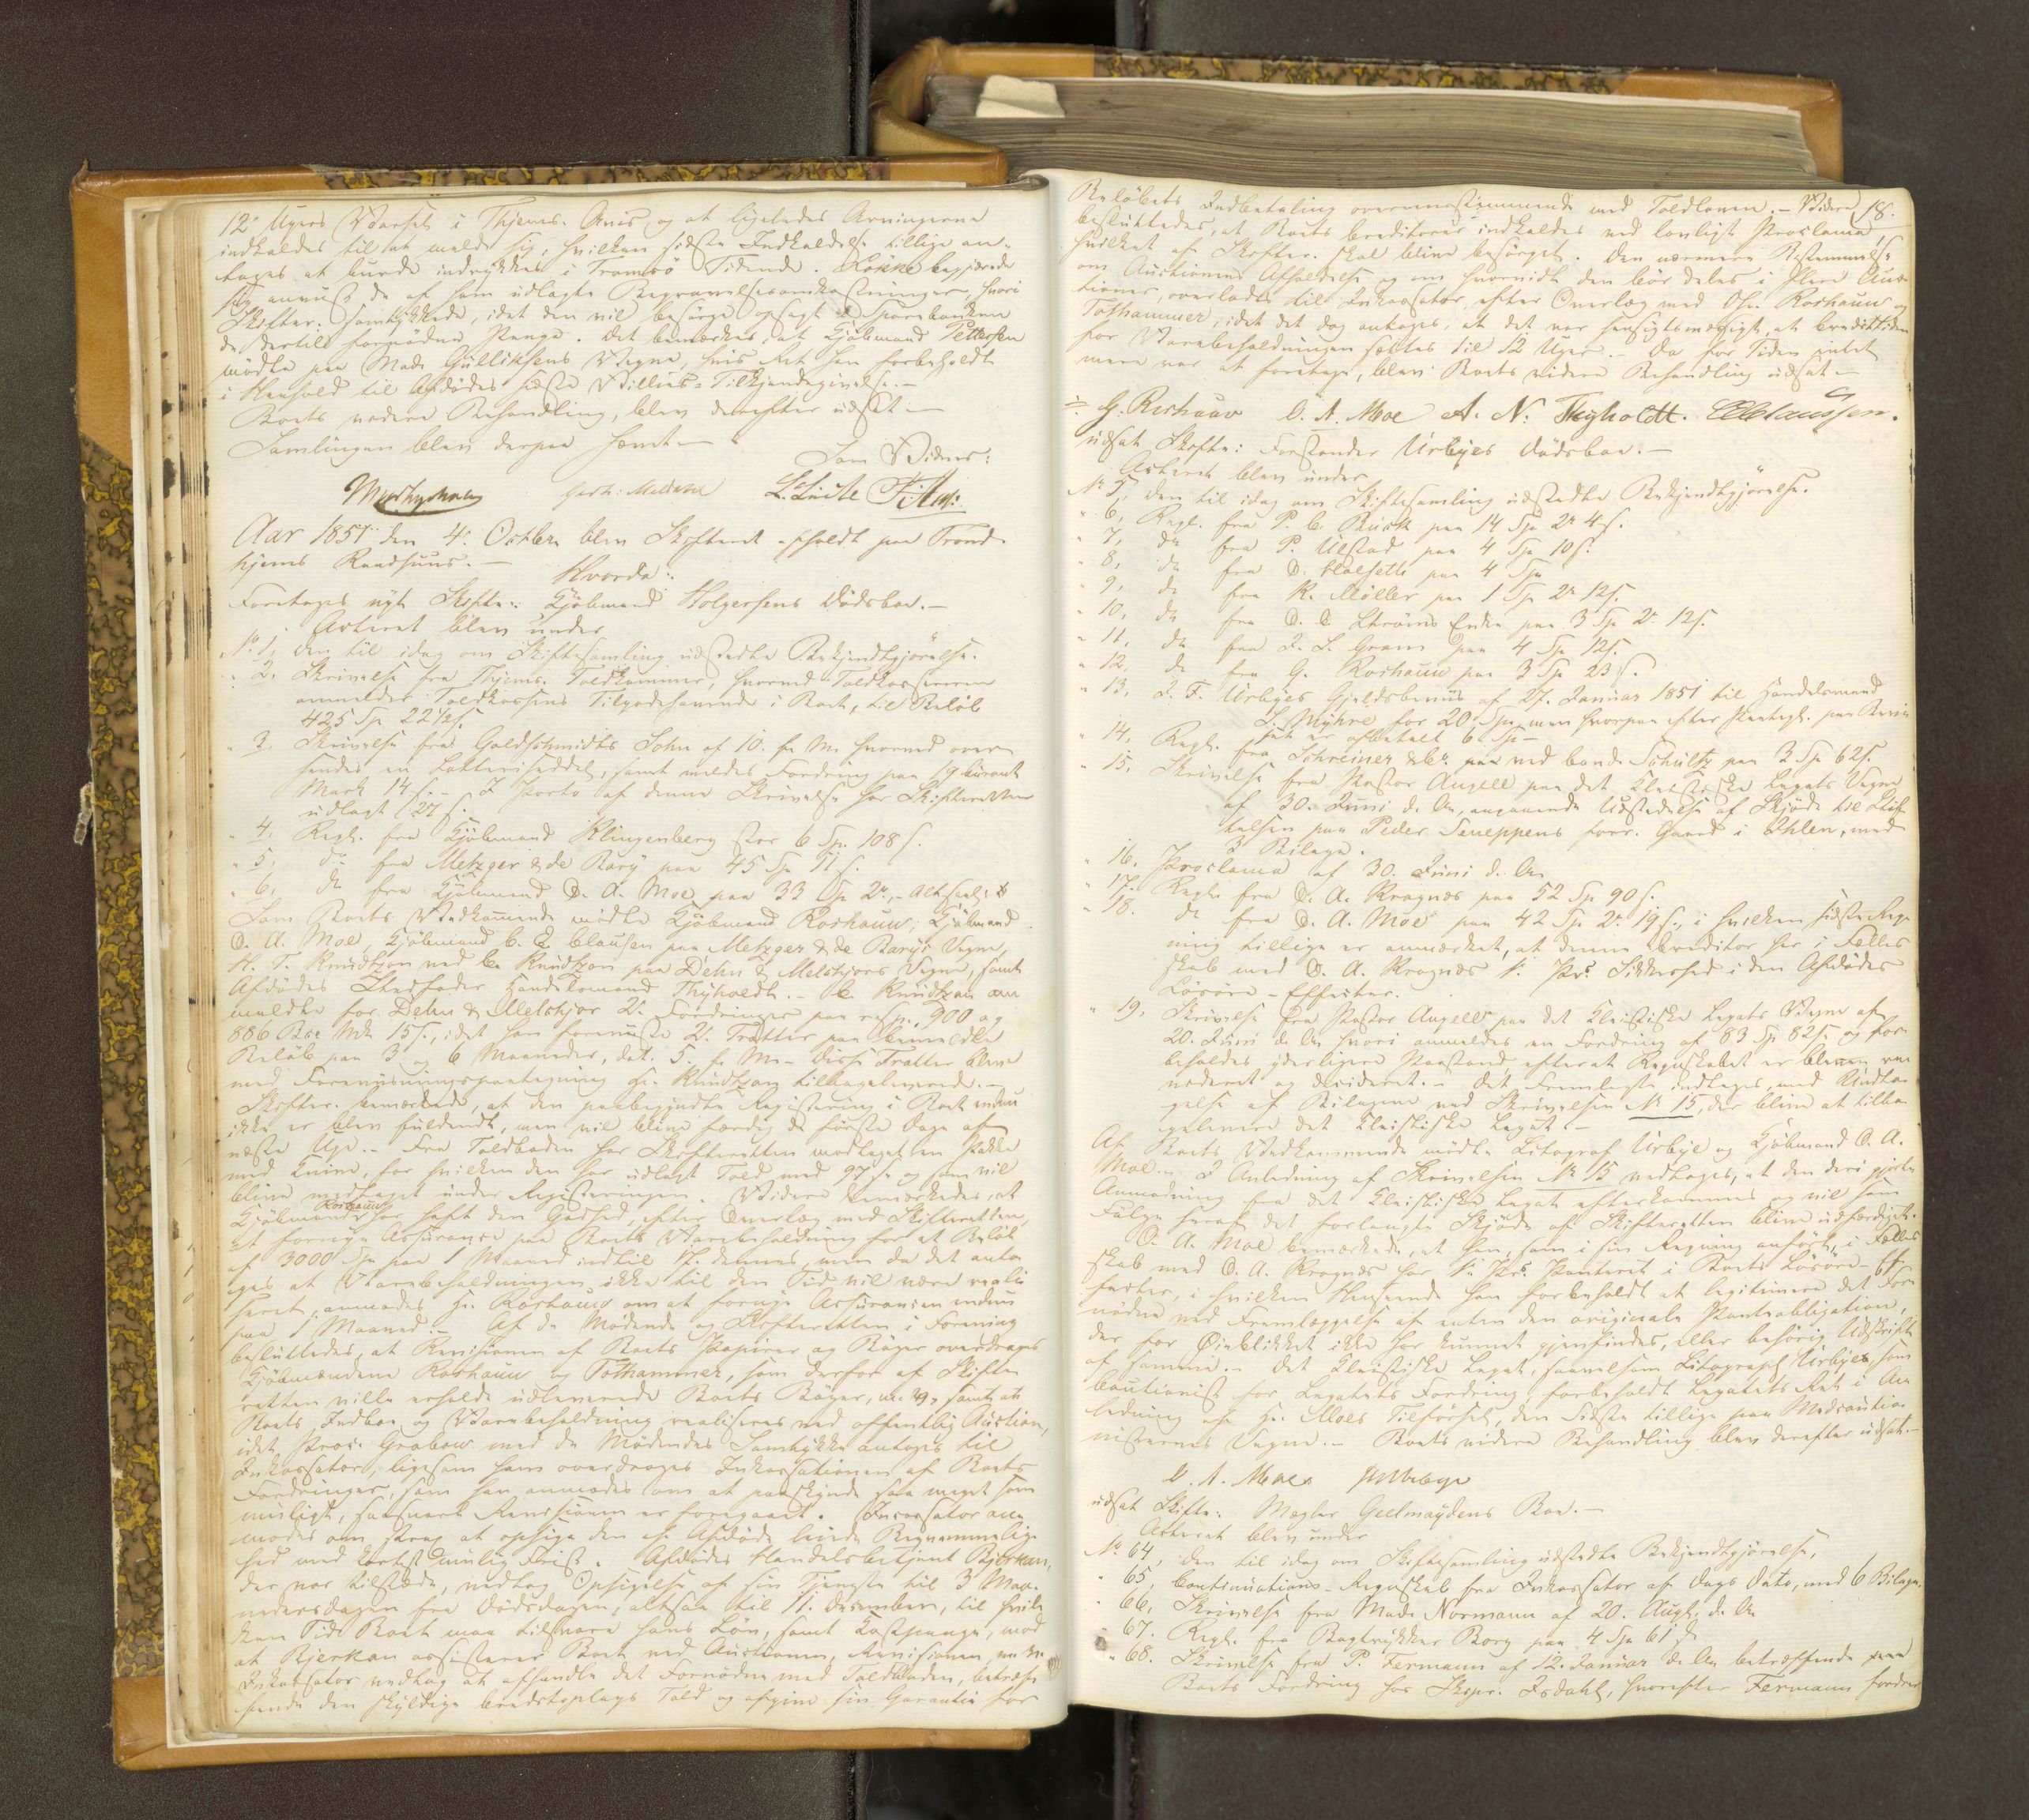 12 Ugers Varsel i Thjems. Avis og at ligeledes Arvingerne
indkaldes til at melde sig, hvilken sidste Indkaldelse tillige an-
toges at burde indrykkes i Tromsö Tidende. Lökke begjærede
sig anvist de af ham udlagte Begravelsesomkostninger, hvori
Skifter: samtykkede, idet den vil besörge opsagt i Sparebanken
de dertil fornødne Penge. Det bemærkes, at Kjöbmand Pettersen
mödte paa Mad. Gulliksens Vegne, hvis Ret han forbeholdt
i Henhold til Afdödes sidste Villies-Tilkjendegivelse.-
Boets videre Behandling, blev derefter udsat-
Samlingen blev derpaa hævet-
Som Vidner:
Aar 1851 den 4: October blev Skifteret afholdt paa Trond-
hjems Raadhuus.-
Hvorda:
Foretages nyt Skifte: Kjöbmand Holgersens Dödsboe.-
Acteret blev under
No 1, den til idag om Skiftesamling udstedte Bekjendtgjörelse.
" 2. Skrivelse fra Thjems. Toldkammer, hvorved Toldkassereren
anmelder Toldkassens Tilgodehavende i Boet, til Beløb
425 Sp 22 1/2 s.
" 3. Skrivelse fra Goldschmidts Sohn af 10. f. M. hvorved over-
sendes en Lotteriseddel, samt meldes Fordring paa 19 Kurant
Mark 14 s.- I Porto af denne Skrivelse har Skifteretten
udlagt 27 s.
" 4. Regl. fra Kjöbmand Klingenberg stor 6 Sp. 108 s.
" 5. do fra Metzger & de Bary paa 45 Sp 11 s.
" 6, do fra Kjöbmand O. A. Moe, paa 33 Sp 2 -
Som Boets Vedkommende mödte Kjöbmand Roshauw, Kjöbmand
O. A. Moe, Kjöbmand C. E. Clausen paa Metzger & de Barys Vegne,
H. T. Knudtzon ved C. Knudtzon paa Dehn & Melchiors Vegne, samt
Afdödes Stedfader Handelsmand Thyholdt.- C. Knudtzon an-
meldte for Dehn & Melchior 2 Fordringer paa resp. 900 og
886 Bco Mk 15 s., idet han foreviiste 2 Tratter paa bemeldte
Beløb paa 3 og 6 Maaneder, dat. 5. f. M.- disse Tratter bleve
med Foreviisningspaategning Hr. Knudtzon tilbageleverede.-
Skifter. bemærkede, at den paabegyndte Registering i Boet endnu
ikke er blev fuldendt, men vil blive færdig de förste Dage af
næste Uge.- Fra Toldboden har Skifteretten modtaget en Pakke
med Knive, for hvilken den har udlagt Told med 97 s. og som vil
blive medtaget under Registeringen. Videre bemærkedes, at
Kjöbmand Roshauw har havt den Godhed, efter Overlæg med Skifteretten,
at fornye Assurance paa Boets Varebeholdning for et Beløb
af 3000 Sp paa 1 Maaned indtil 17. dennes, men da det anta-
ges at Varebeholdningen ikke til den Tid vil være reali-
seret, anmodes Hr. Roshauw om at fornye Assurancen endnu
paa 1 Maaned.- Af de Mödende og Skifteretten i Forening
besluttedes, at Revisionen af Boets Papirer og Böger overdrages
Kjöbmændene Roshauw og Tofhammer, som derfor af Skifte-
retten ville erholde udleverede Boets Böger, samt at
Boets Indboe og Varebeholdning realiseres ved offentlig Auction,
idet Proc. Grabow med de Mödendes Samtykke antoges til
Inkassator, ligesom ham overdrages Inkassationen af Boets
Fordringer, som han anmodes om at paaskynde saa meget som
muligt, saasnart Revisionen er foregaaet. Incassator an-
modes om strax at opsige den af Afdöde leiede Bequemmelig-
hed med kortest mulig Frist. Afdödes Handelsbetjent Bjerkan,
der var tilstede, vedtog Opsigelse af sin Tjeneste til 3 Maa-
nedersdagen fra Dödsdagen, altsaa til 11. December, til hvil-
ken Tid Boet maa tilsvare hans Lön, samt Kostpenge, mod
at Bjerkan assisterer Boet ved Auctionen, Revisionen m. m.
Inkassator vedtog at afhandle det Fornödne med Toldboden, betræf-
fende den skyldige Creditoplags Told og afgive sin Garanti for
18.
Belöbets Indbetaling overeensstemmende med Toldloven.- Videre
besluttedes, at Boets Creditorer indkaldes ved lovligt Proclama,
hvilket af Skifter. skal blive besörget. Den nærmere Bestemmelse
om Auctionens Afholdelse og om hvorvidt den bör deles i flere Auc-
tioner, overlodes til Inkassator efter Overlæg med Hr. Roshauw og
Tofhammer, idet det dog antoges, at det var hensigtsmæssigt, at Credittiden
for Varebeholdningen sættes til 12 Uger.- Da for Tiden intet
mere var at foretage, blev Boets videre Behandling udsat-
G. Roshauw O. A. Moe A. N. Thyholdt. C E Claussen.
udsat Skifte: Forstander Urbyes Dödsboe.-
Acteret blev under
No 5, den til idag om Skiftesamling udstedte Bekjendtgjörelse.
" 6, Regl. fra P. C. Buck paa 14 Sp 2 4 s.
" 7, do fra P. Ulstad paa 4 Sp 10 s.
" 8, do fra O. Halseth paa 4 Sp
" 9, do fra K. Möller paa 1 Sp 2 12 s.
" 10, do fra O. Ströms Enke paa 3 Sp 2 12 s.
" 11, do fra J. L. Gram paa 4 Sp 12 s.
" 12, do fra G. Roshauw paa 3 Sp 23 s.
" 13, J. F. Urbyes Gjeldsbeviis af 27. Januar 1851 til Handelsmand
S. Myhre for 20 Sp, men hvorpaa efter Paategn. paa Bevi-
set er afbetalt 6 Sp-
" 14, Regl. fra Schreiner & Co ved Cand. Schultz paa 3 Sp 62 s.
" 15, Skrivelse fra Pastor Angell paa det Kleistiske Legats Vegne
af 30. Juni d. A., angaaende Udstedelse af Skjöde til Stif-
telsen paa Peder Sneppens forr. Gaard i Ihlen, med
3 Bilage.
" 16. Proclama af 30. Juni d. A.
" 17. Regl. fra O. A. Kragnæs paa 52 Sp 90 s.
" 18. do fra O. A. Moe paa 42 Sp 2 19 s., i hvilken sidste Reg-
ning tillige er anmærket, at denne Creditor har i Fælles-
skab med O. A. Kragnæs 1ste Prs Sikkerhed i den Afdödes
Lösöre-Effecter.
" 19, Skrivelse fra Pastor Angell paa det Kleistiske Legats Vegne af
20. Juni d. A. hvori anmeldes en Fordring af 83 Sp 82 s. og for-
beholdes yderligere Paastand, efterat Regnskabet er bleven re-
videret og decideret.- Det Fremlagte indtages, med Undta-
gelse af Bilagene ved Skrivelsen No 15, der blive at tilba-
gelevere det Kleistiske Legat.-
Af Boets Vedkommende mödte Litograf Urbye og Kjöbmand O. A.
Moe.- I Anledning af Skrivelsen No 15 vedtoges, at den deri gjorte
Anmodning fra det Kleistiske Legat efterkommes og vil som
Fölge heraf det forlangte Skjöde af Skifteretten blive udfærdiget.
O. A. Moe bemærkede, at han, som i sin Regning anfört, i Fælles-
skab med O. A. Kragnæs har 1ste Prs. Panteret i Boets Lösöre-Ef-
fecter, i hvilken Henseende han forbeholdt at legitimere det For-
nödne ved Fremlæggelse af enten den originale Panteobligation,
der for Øieblikket ikke har kunnet gjenfindes, eller behörig Udskrift
af samme.- Det Kleistiske Legat, saavelsom Litograph Urbye, som
Cautionist for Legatets Fordring, forbeholdt Legatets Ret i An-
ledning af Hr. Moes Tilförsel, den Sidste tillige paa Medcautio-
nisternes Vegne.- Boets videre Behandling blev derefter udsat.-
O. A. Moe
udsat Skifte: Mægler Geelmuydens Boe.-
Acteret blev under
No 64, den til idag om Skiftesamling udstedte Bekjendtgjörelse,
" 65, Continuations-Regnskab fra Inkassator af Dags Dato, med 6 Bilage.
" 66, Skrivelse fra Mad. Normann af 20. Augt. d. A.
" 67. Regl. fra Bogtrykker Borg paa 4 Sp 61 s
" 68. Skrivelse fra P. Fermann af 12. Januar d. A. betræffende
Boets Fordring hos Skipr. Isdahl, hvorefter Fermann fordrer